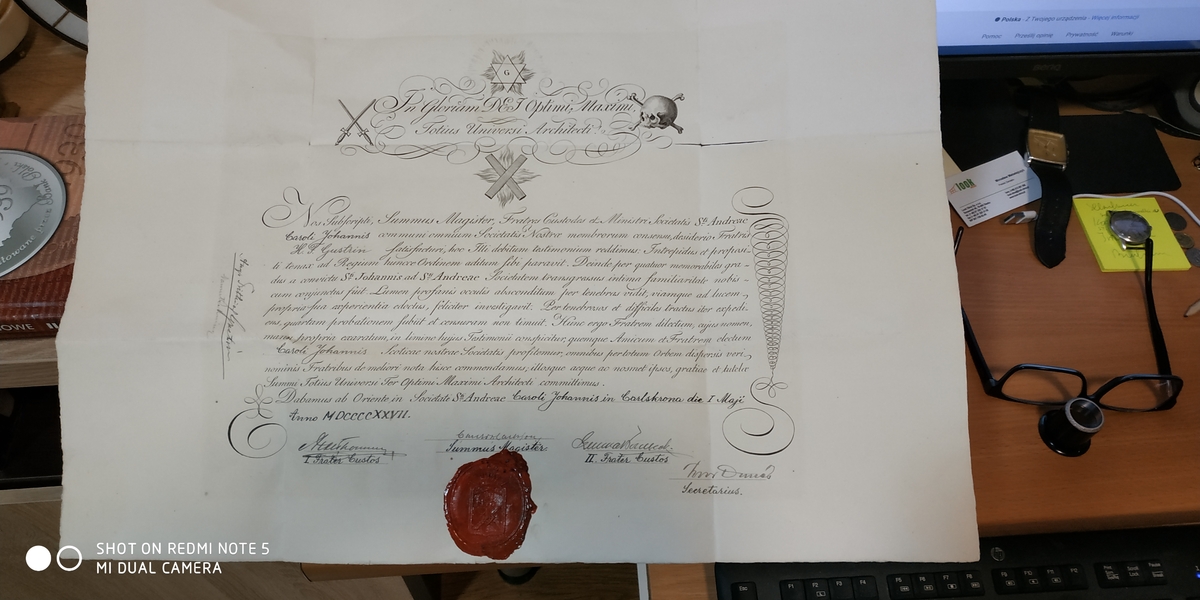 G
In Gloriam DEI Optimi Maximi.
Totius Universi Architecti.
Nos Subscripti, Summus Magister, Fratres Custodes et Ministri Societatis Sti. Andreae
Caroli Johannis communi omnium Societatis Nostrae membrorum consensu, desiderio Fratris
satisfacturi, hoc Illi debitum testimonium reddimus: Intrepidus et proposi-
ti tenax ad Regnum huncce Ordinem aditum sibi paravit. Deinde per quatuor memorabilis gra-
dus a convictu Sti. Johannis ad Sti. Andreae Societatem transgressus intima familiaritate nobis-
cum conjunctus fuit. Lumen profanis oculis absconditum per tenebras vidit, viamque ad lucem,
propria sua experientia edoctus, feliciter investigavit. Per tenebrosos et difficiles tractus iter expedi-
ens, quartam probationem subiit et censuram non timuit. Hunc ergo Fratrem dilectum, cujus nomen,
manu propria exaratum, in limine hujus Testimonii conspicitur, quemque Amicum et Fratrem electum
Caroli Johannis Scoticae nostrae Societatis profitemur, omnibus per totum Orbem dispersis veri
nominis Fratribus de meliori nota hisce commendamus, illosque aeque ac nosmet ipsos, gratiae et tutelae
Summi Totius Universi Ter Optimi Maximi Architecti committimus.
Dabamus ab Oriente in Societate Sti. Andreae Caroli Johannis in Carlskrona die I Maji
Anno MDCCCCXXVII.
I Frater Custos
Summus Magister
II. Frater Custos
Secretarius.
Polska · Z Twojego urządzenia - Więcej informacji
Pomoc Prześlij opinię Prywatność Warunki
look
OWE II
Esc F1 F2 F3 F4 F5 F6 F7 F8 F9 F10 F11 F12
Scroll Lock
Pause
SHOT ON REDMI NOTE 5
MI DUAL CAMERA